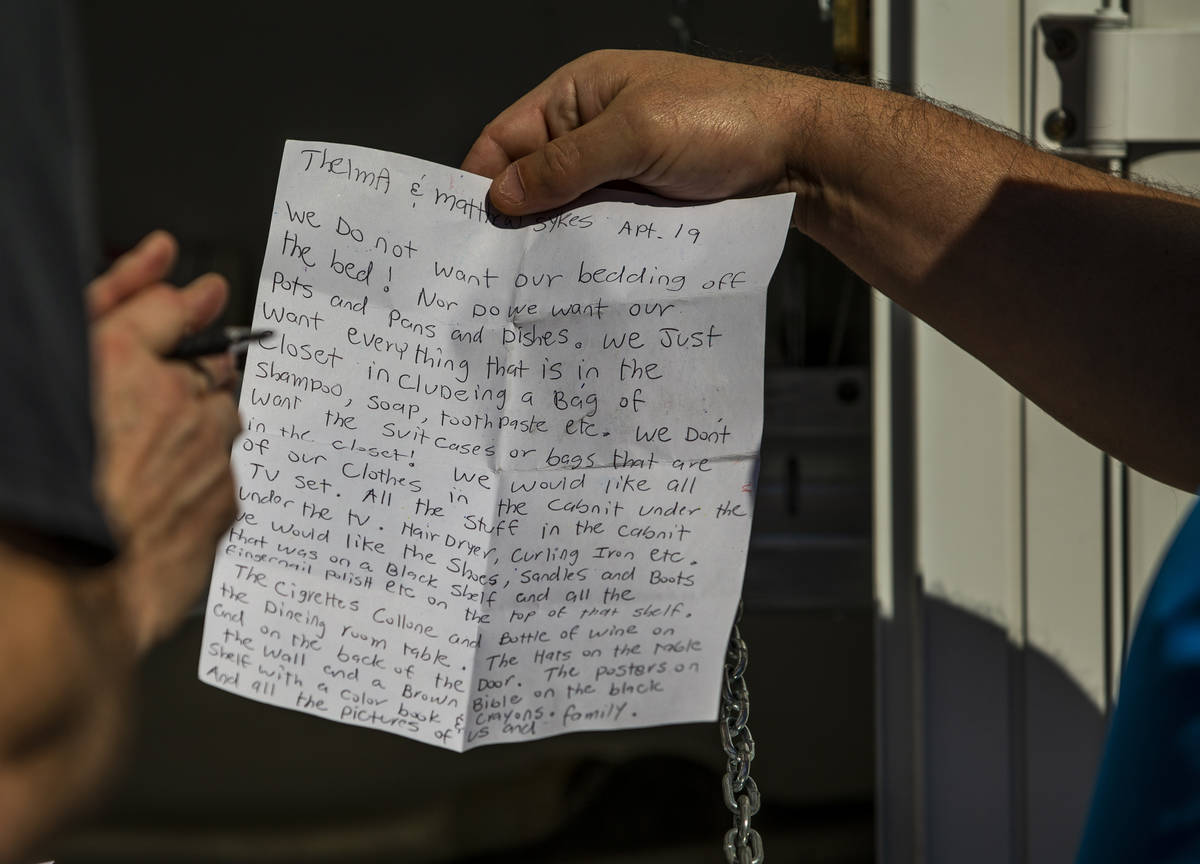 ThelmA & sykes Apt. 19
We Do not want our bedding off
the bed! Nor Do we want our
Pots and Pans and Dishes. We Just
want everything that is in the
closet in CluDeing a Bag of
Shampoo, soap, toothpaste etc. We Don't
want the suitcases or bags that are
in the closet! We would like all
of our clothes in the Cabnit under the
TV set. All the stuff in the cabnit
under the tv. HairDryer, Curling Iron etc.
we would like the shoes, sandles and Boots
that was on a Black shelf and all the
fingernail polish etc on the top of that shelf.
The Cigrettes Collone and Bottle of wine on
the Dineing room table. The Hats on the table
and on the back of the Door. The posters on
the wall and a Brown Bible on the black
shelf with a color book & crayons.
And all the pictures of us and family.